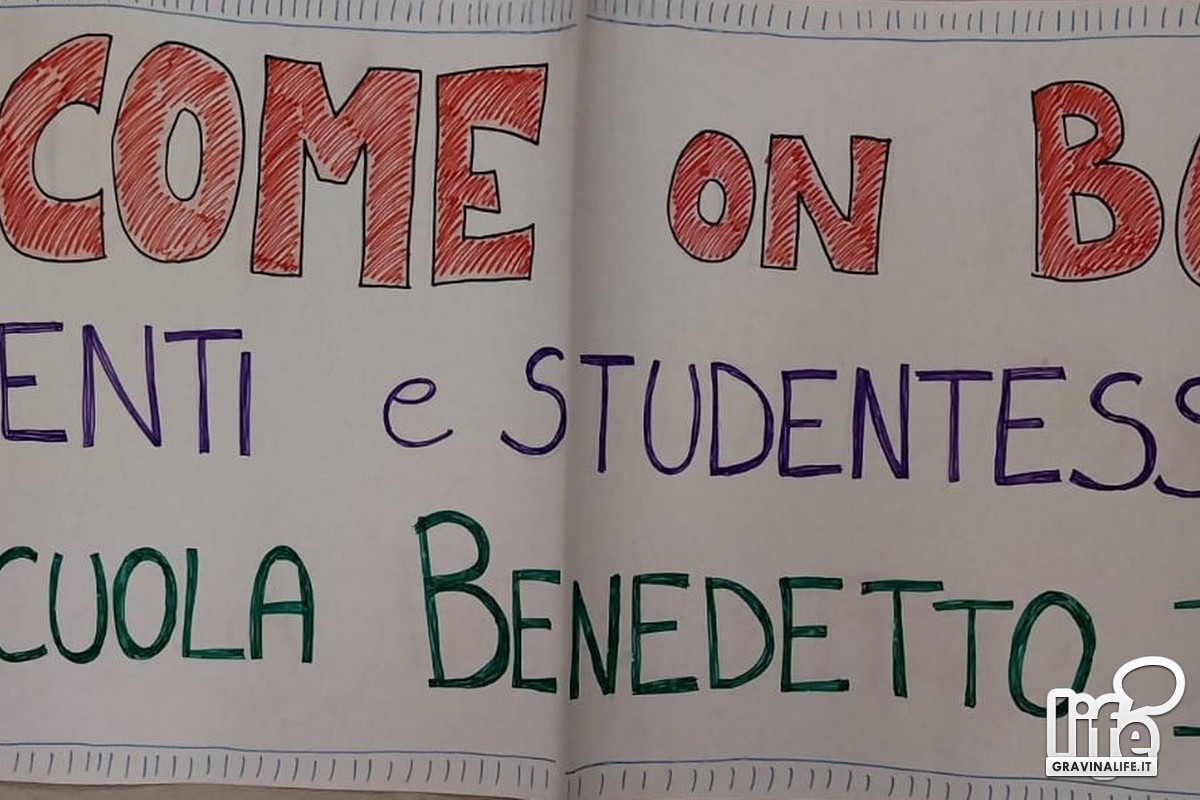 COME ON BO
ENTI e STUDENTESS
CUOLA BENEDETTO
life
GRAVINALIFE.IT